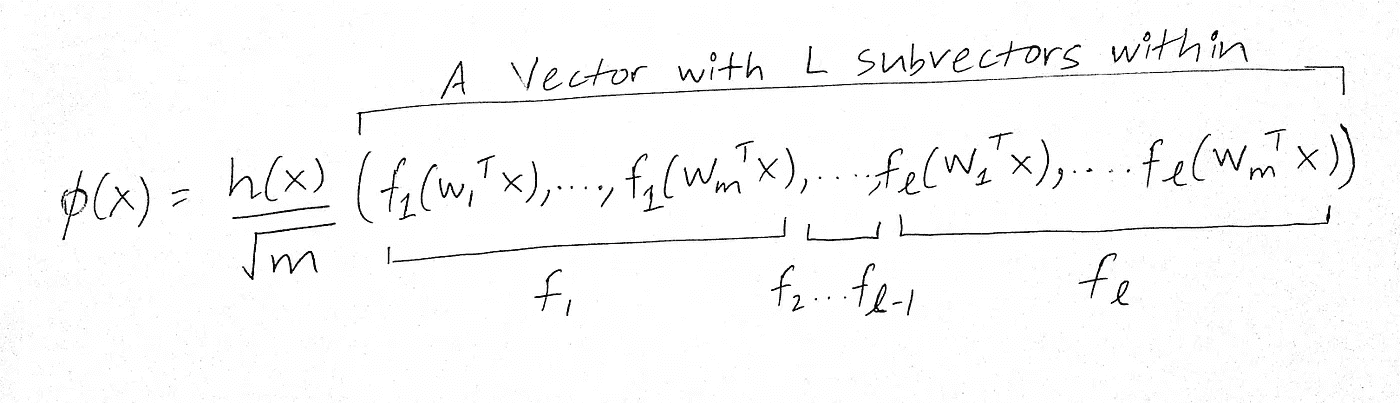 A Vector with L subvectors within
ϕ(x) = h(x)/√m (f₁(w₁ᵀx),...., f₁(wₘᵀx),....,fℓ(w₁ᵀx),....fℓ(wₘᵀx))
f₁ f₂...fℓ₋₁ fℓ